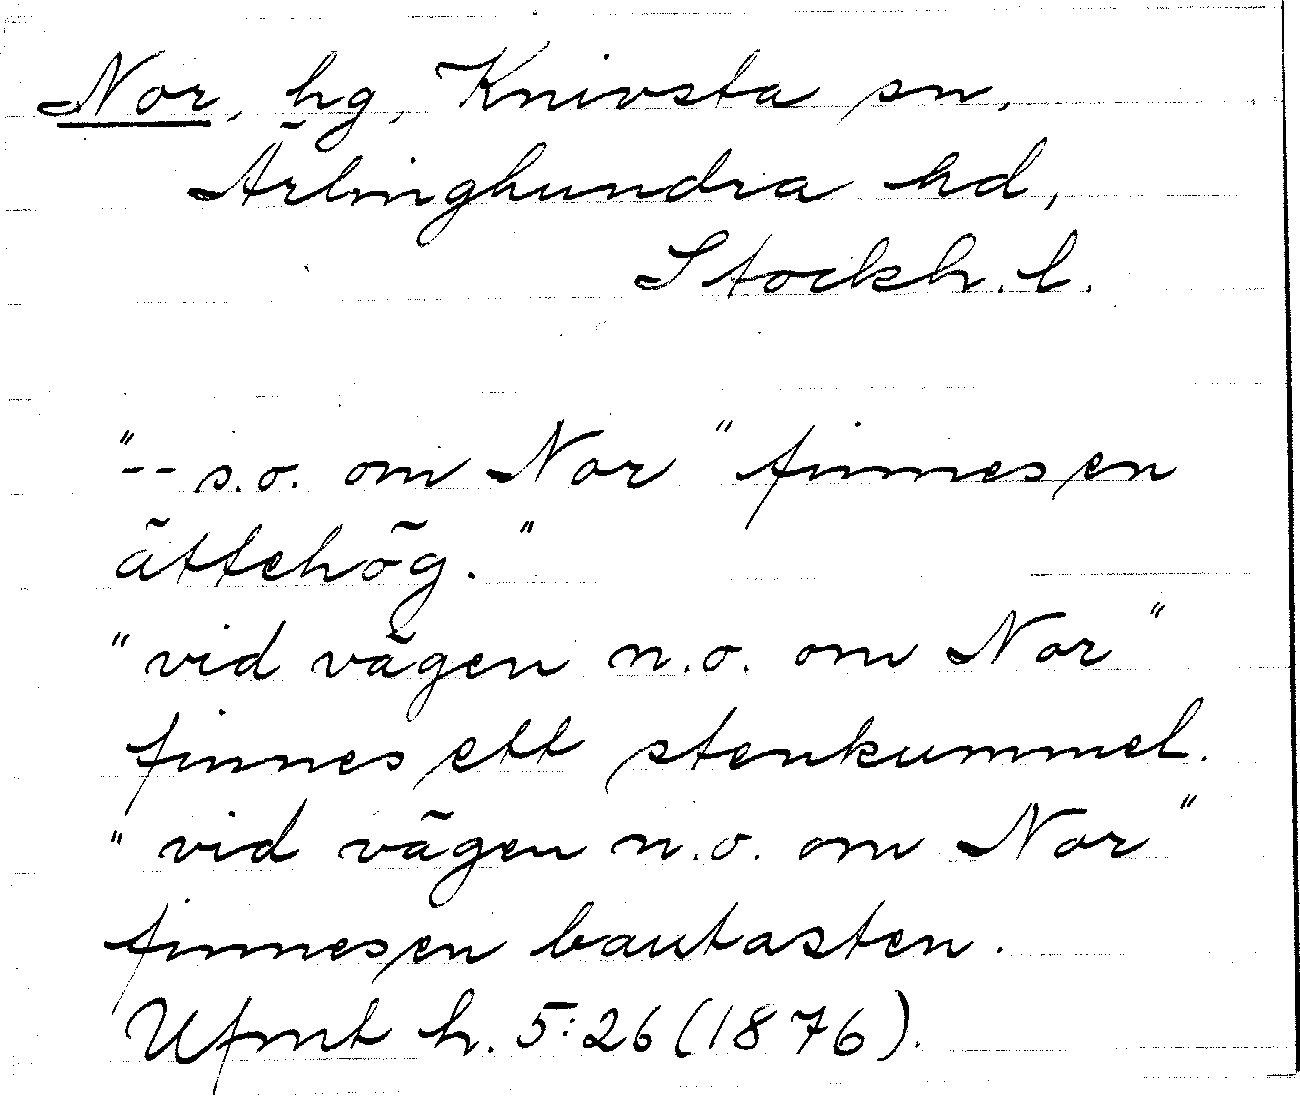 Nor, hg, Knivsta sn,
Ärlinghundra hd,
Stockh. l.
"-- s.o. om Nor" finnes en
ättehög."
"vid vägen n.o. om Nor"
finnes ett stenkummel.
"vid vägen n.o. om Nor"
finnes en bautasten.
Ufmt h. 5:26 (1876).